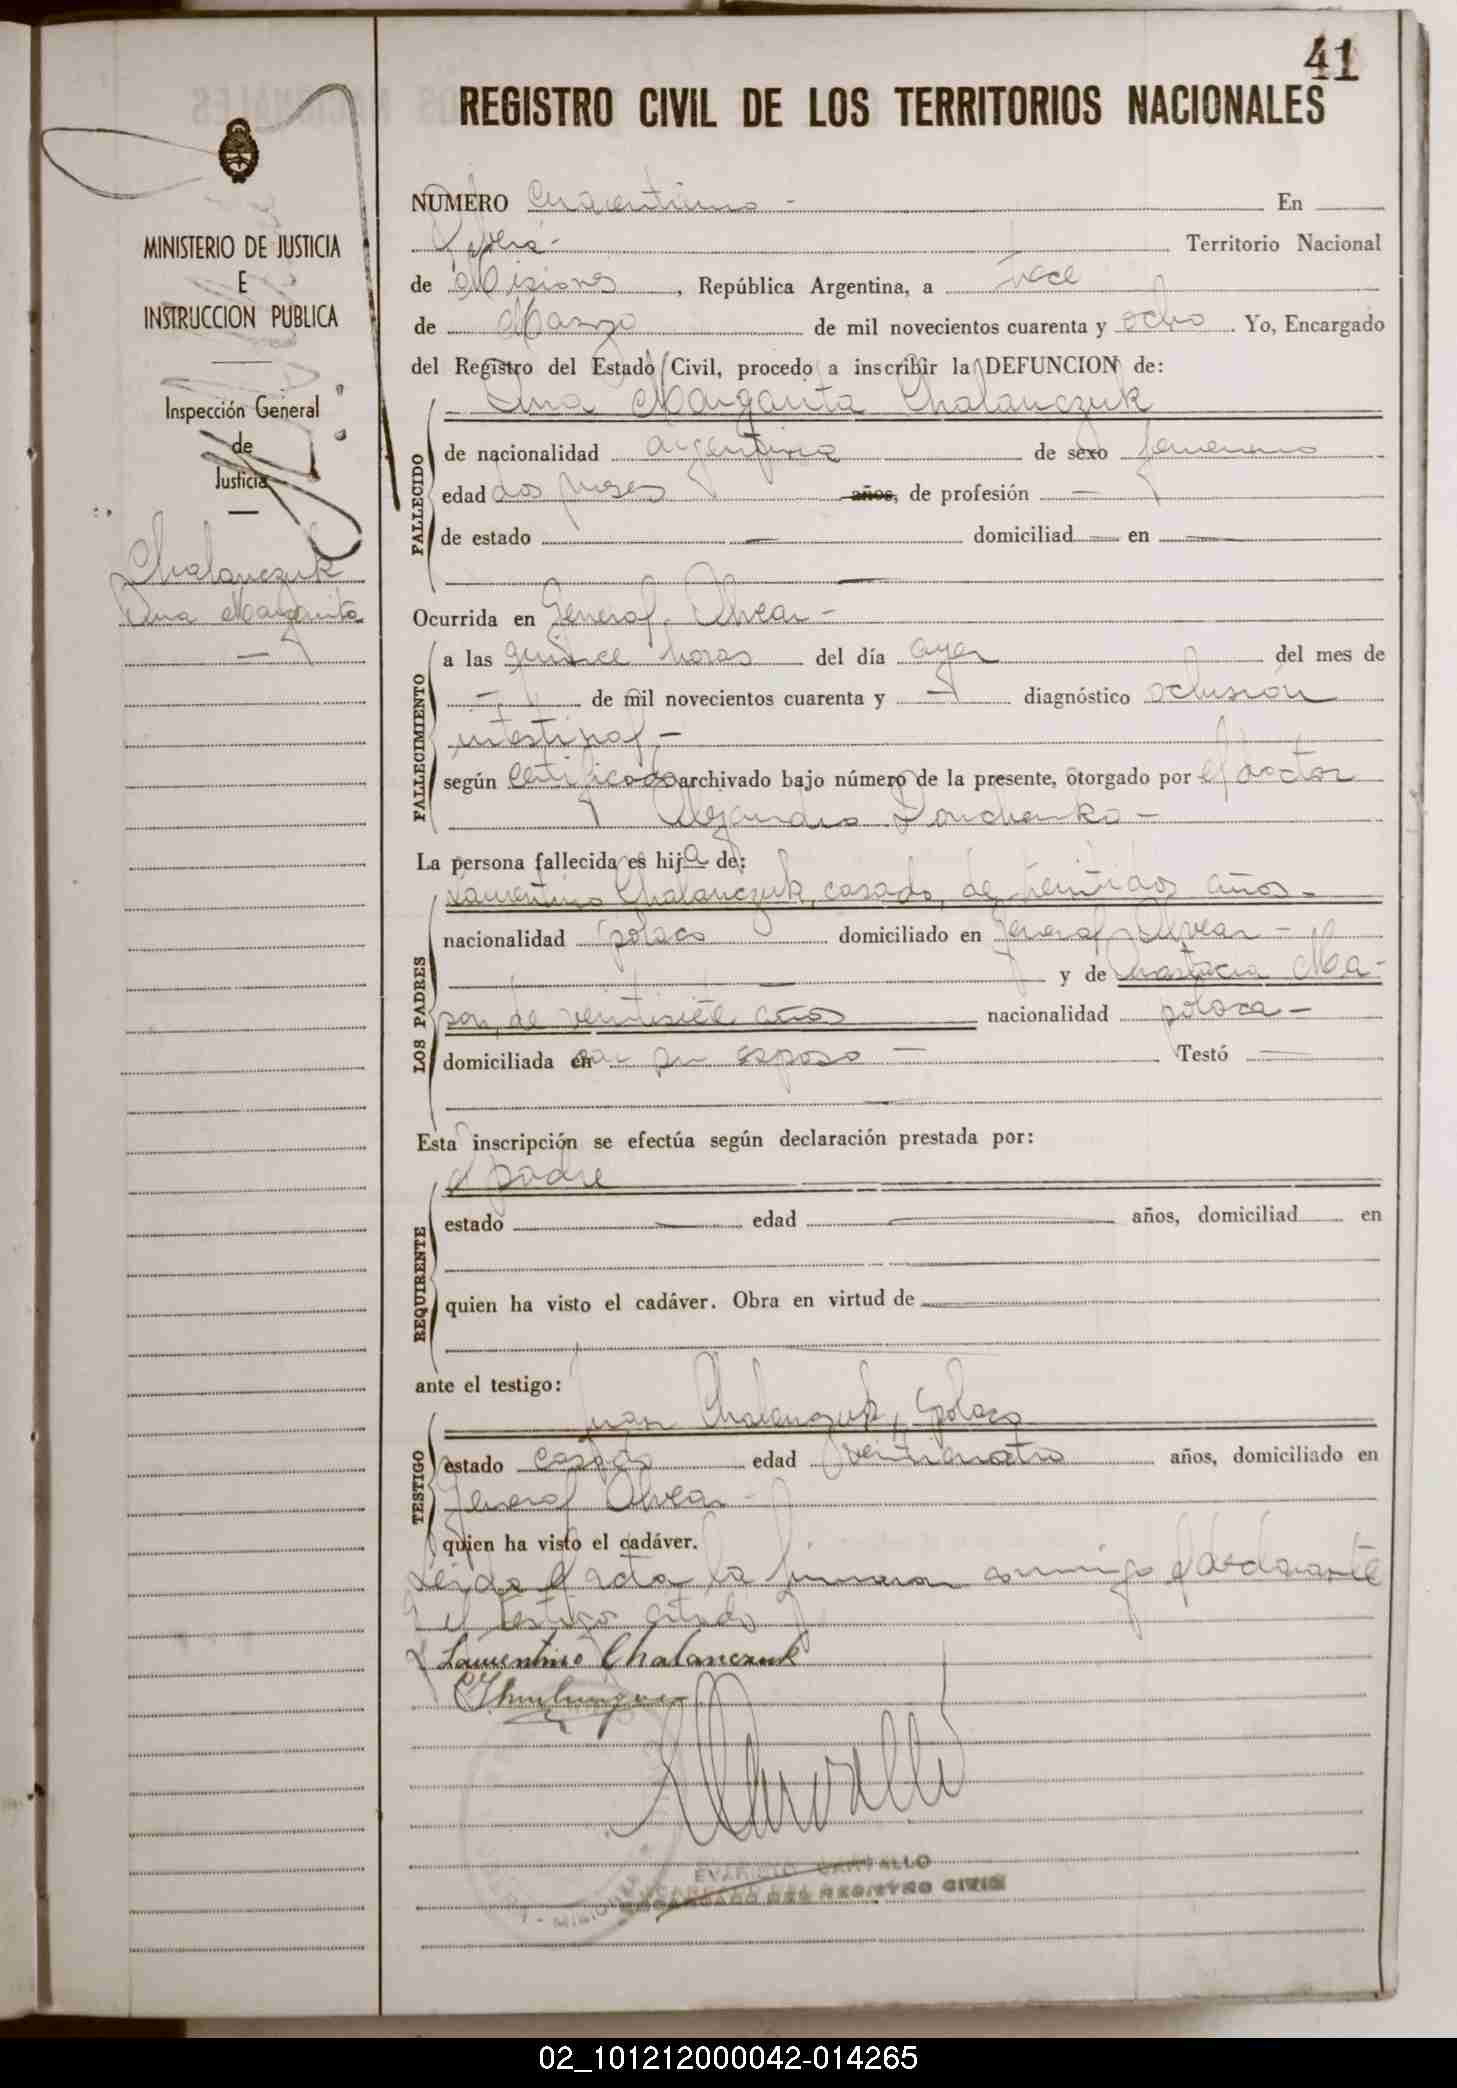 41
REGISTRO CIVIL DE LOS TERRITORIOS NACIONALES
MINISTERIO DE JUSTICIA
E
INSTRUCCION PUBLICA
Inspección General
de
Justicia
Chalanczuk
Ana Margarita
NUMERO Cuarentiuno - En
Territorio Nacional
de Misiones, República Argentina, a trece
de Marzo de mil novecientos cuarenta y ocho. Yo, Encargado
del Registro del Estado Civil, procedo a inscribir la DEFUNCION de:
Ana Margarita Chalanczuk
FALLECIDO
de nacionalidad argentina de sexo femenino
edad dos meses años, de profesión —
de estado — domiciliad — en —
Ocurrida en General Alvear -
FALLECIMIENTO
a las quince horas del día ayer del mes de
— de mil novecientos cuarenta y — diagnóstico oclusión
intestinal -
según certificado archivado bajo número de la presente, otorgado por el doctor
Alejandro -
La persona fallecida es hija de:
LOS PADRES
Laurentino Chalanczuk, casado, de treintidos años -
nacionalidad polaco domiciliado en General Alvear -
y de Anastacia Ma-
de veintisiete años nacionalidad polaca -
domiciliada en con su esposo - Testó —
Esta inscripción se efectúa según declaración prestada por:
el padre
REQUIRENTE
estado — edad — años, domiciliad en
quien ha visto el cadáver. Obra en virtud de —
ante el testigo:
Juan Chalanczuk, polaco
TESTIGO
estado casado edad veinticuatro años, domiciliado en
General Alvear -
quien ha visto el cadáver.
Leida el acta la firmaron conmigo el declarante
y el testigo citado
Laurentino Chalanczuk
ENCARGADO DEL REGISTRO CIVIL
02_101212000042-014265